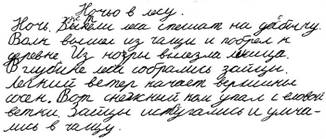 Ночью в лесу.
Ночь. Жители леса спешат на добычу.
Волк вышел из чащи и побрел к
деревне Из норы вылезла лисица.
В глубине леса собрались зайцы.
Легкий ветер качает вершины
сосен. Вот снежный ком упал с еловой
ветки. Зайцы испугались и умча-
лись в чащу.